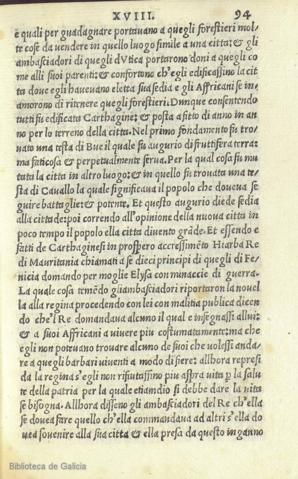 XVIII. 94
e quali per guadagnare portavano a quegli forestieri mol
te cose da vendere in quello luogo simile a una citta: & gli
ambasciadori di quegli dVtica portarono doni a quegli co
me alli suoi parenti: & confortono ch'egli edificassino la cit
ta dove egli havevano eletta sua sedia e gli Affricani se in
amorono di ritenere quegli forestieri. Dunque consentendo
tutti fu edificata Carthagine: & posta a fito di anno in an
no per lo terreno della citta. Nel primo fondamento fu tro
vato una testa di Bue il quale fu augurio di fruttifera terra:
ma faticosa & perpetualmente serva. Per la qual cosa fu mu
tata la citta in altro luogo: & in quello fu trovata una te
sta di Cavallo la quale significava il popolo che doveva se
guire battaglie: & potente. Et questo augurio diede sedia
alla cittade: poi correndo all'opinione della nuova citta in
poco tempo il popolo ella citta divento gråde. Et essendo e
fatti de Carthaginesi in prospero accrescimēto Hiarba Re
di Mauritania chiamati a se dieci principi di quegli di Fe
nicia domando per moglie Elysa con minaccie di guerra.
La quale cosa temēdo gliambasciadori riportaron la novel
la alla regina procedendo con lei con malitia publica dicen
do che'l Re domandava alcuno il qual e insegnassi allui:
& a suoi Affricani a vivere piu costumatamente: ma che
egli non potevano trovare alcuno de suoi che volessi anda/
re a quegli barbari viventi a modo di fiere: allhora represi
da la regina s'egli non rifiutassino piu aspra vita p la salu
te della patria per la quale etiamdio si debbe dare la vita
se bisogna. Allhora disseno gli ambasciadori del Re ch'ella
se dovea fare quello ch'ella commandava ad altri s'ella do
vea sovenire alla sua citta & ella presa da questo inganno
Biblioteca de Galicia